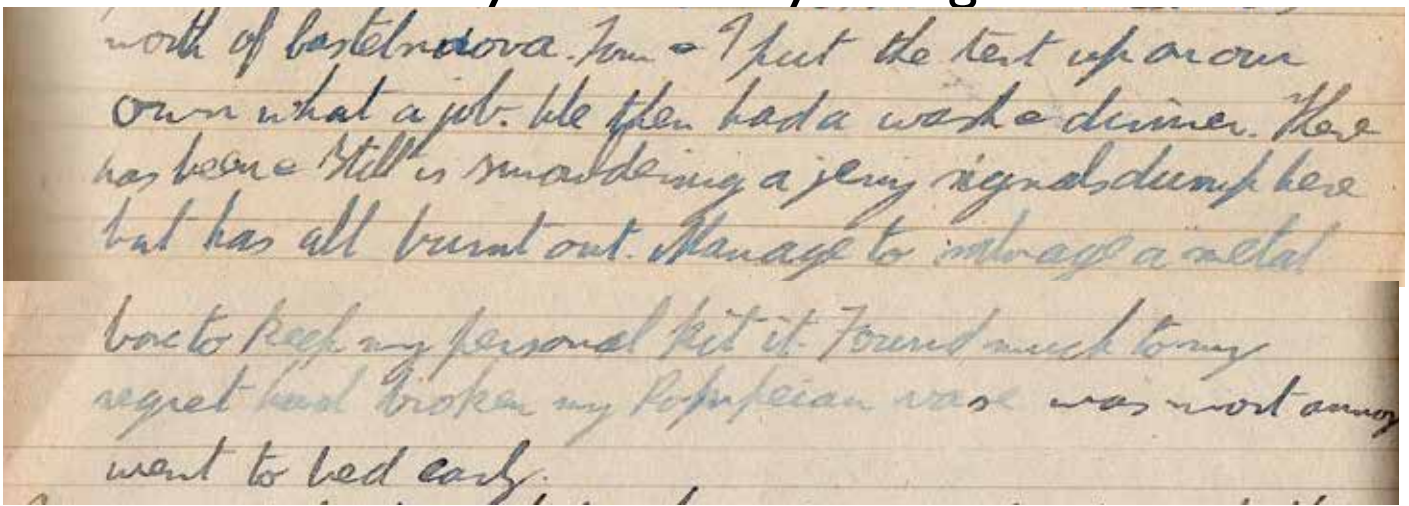 north of Castelnuova. Tom & I put the tent up on our
own what a job. We then had a wash & dinner. There
has been & still is smouldering a jerry signals dump here
but has all burnt out. Manage to salvage a metal
box to keep my personal kit it. Found much to my
regret had broken my Pompeian vase was most annoy
went to bed early.